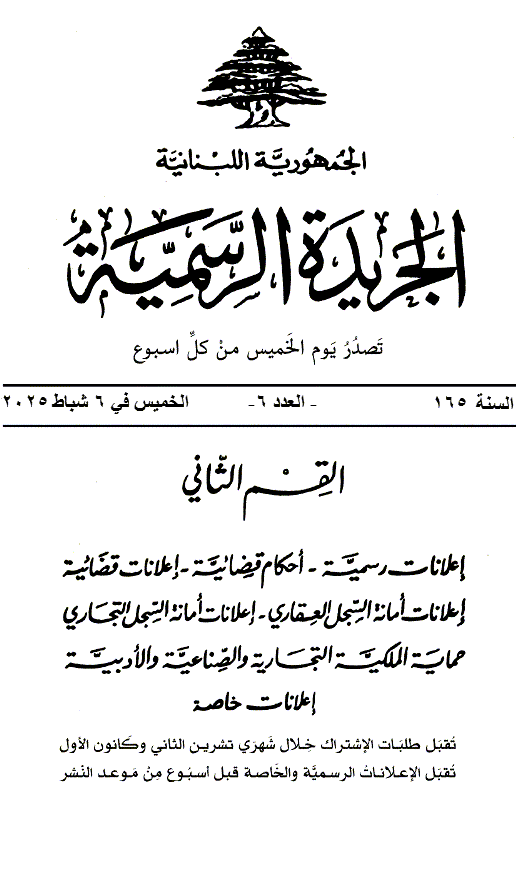 الجُمهُوريَّة اللبْنانيَّة
الجَريدَة الرسَّمِيَّة
تَصدُرُ يَوم الخَميس منْ كلِّ اسبوع
السنة ١٦٥ - العدد ٦- الخميس في ٦ شباط ٢٠٢٥
القِسْم الثّاني
إعلانات رسميَّة - أحكام قضائيَّة - إعلانات قضائية
إعلانات أمانة السِّجل العقاري - إعلانات أمانة السِّجل التجاري
حماية الملكيَّة التجارية والصِّناعيَّة والأدبيَّة
إعلانات خاصة
تُقبَل طلبَات الإشتراك خِلال شَهرَي تشرين الثاني وكَانون الأول
تُقبَل الإعلاناتُ الرسميَّة والخَاصة قبل أسبُوع مِنْ مَوعد النَشر